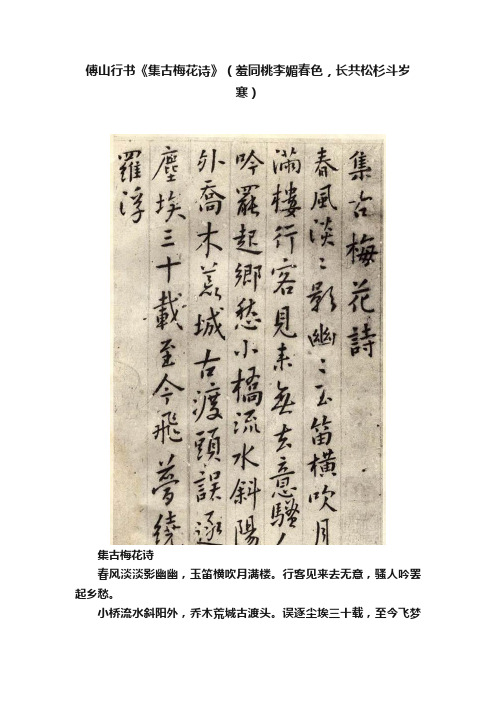 傅山行书《集古梅花诗》（羞同桃李媚春色，长共松杉斗岁
寒）
集古梅花詩
春風淡〻影幽〻玉笛橫吹月
滿樓行客見来無去意騷人
吟罷起鄉愁小橋流水斜陽
外喬木荒城古渡頭誤逐
塵埃三十載至今飛夢繞
羅浮
集古梅花诗
春风淡淡影幽幽，玉笛横吹月满楼。行客见来去无意，骚人吟罢
起乡愁。
小桥流水斜阳外，乔木荒城古渡头。误逐尘埃三十载，至今飞梦